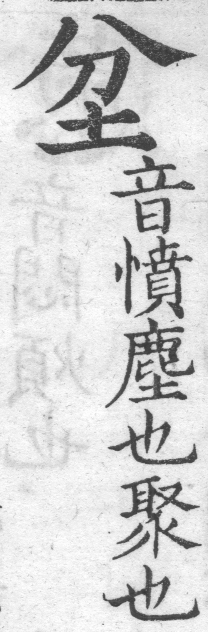 坌音憤塵也聚也